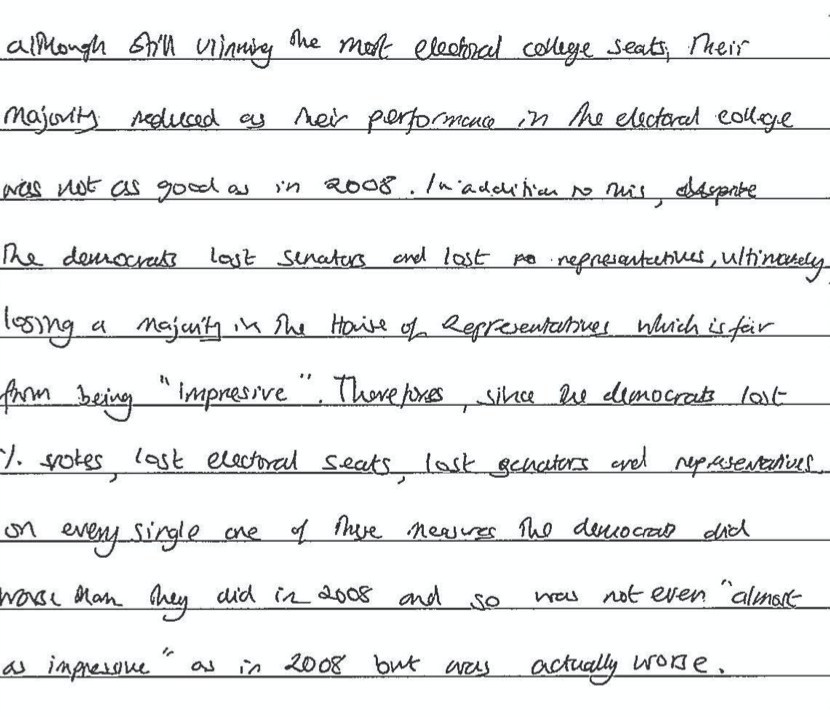 although still winning the most electoral college seats, their
majority reduced as their performance in the electoral college
was not as good as in 2008. In addition to this, despite
the democrats lost senators and lost no representatives, ultimately
losing a majority in the House of Representatives which is far
from being "impresive". Therefores, since the democrats lost
% votes, lost electoral seats, lost senators and representatives
on every single one of these measures the democrats did
worse than they did in 2008 and so was not even "almost
as impressive" as in 2008 but was actually worse.